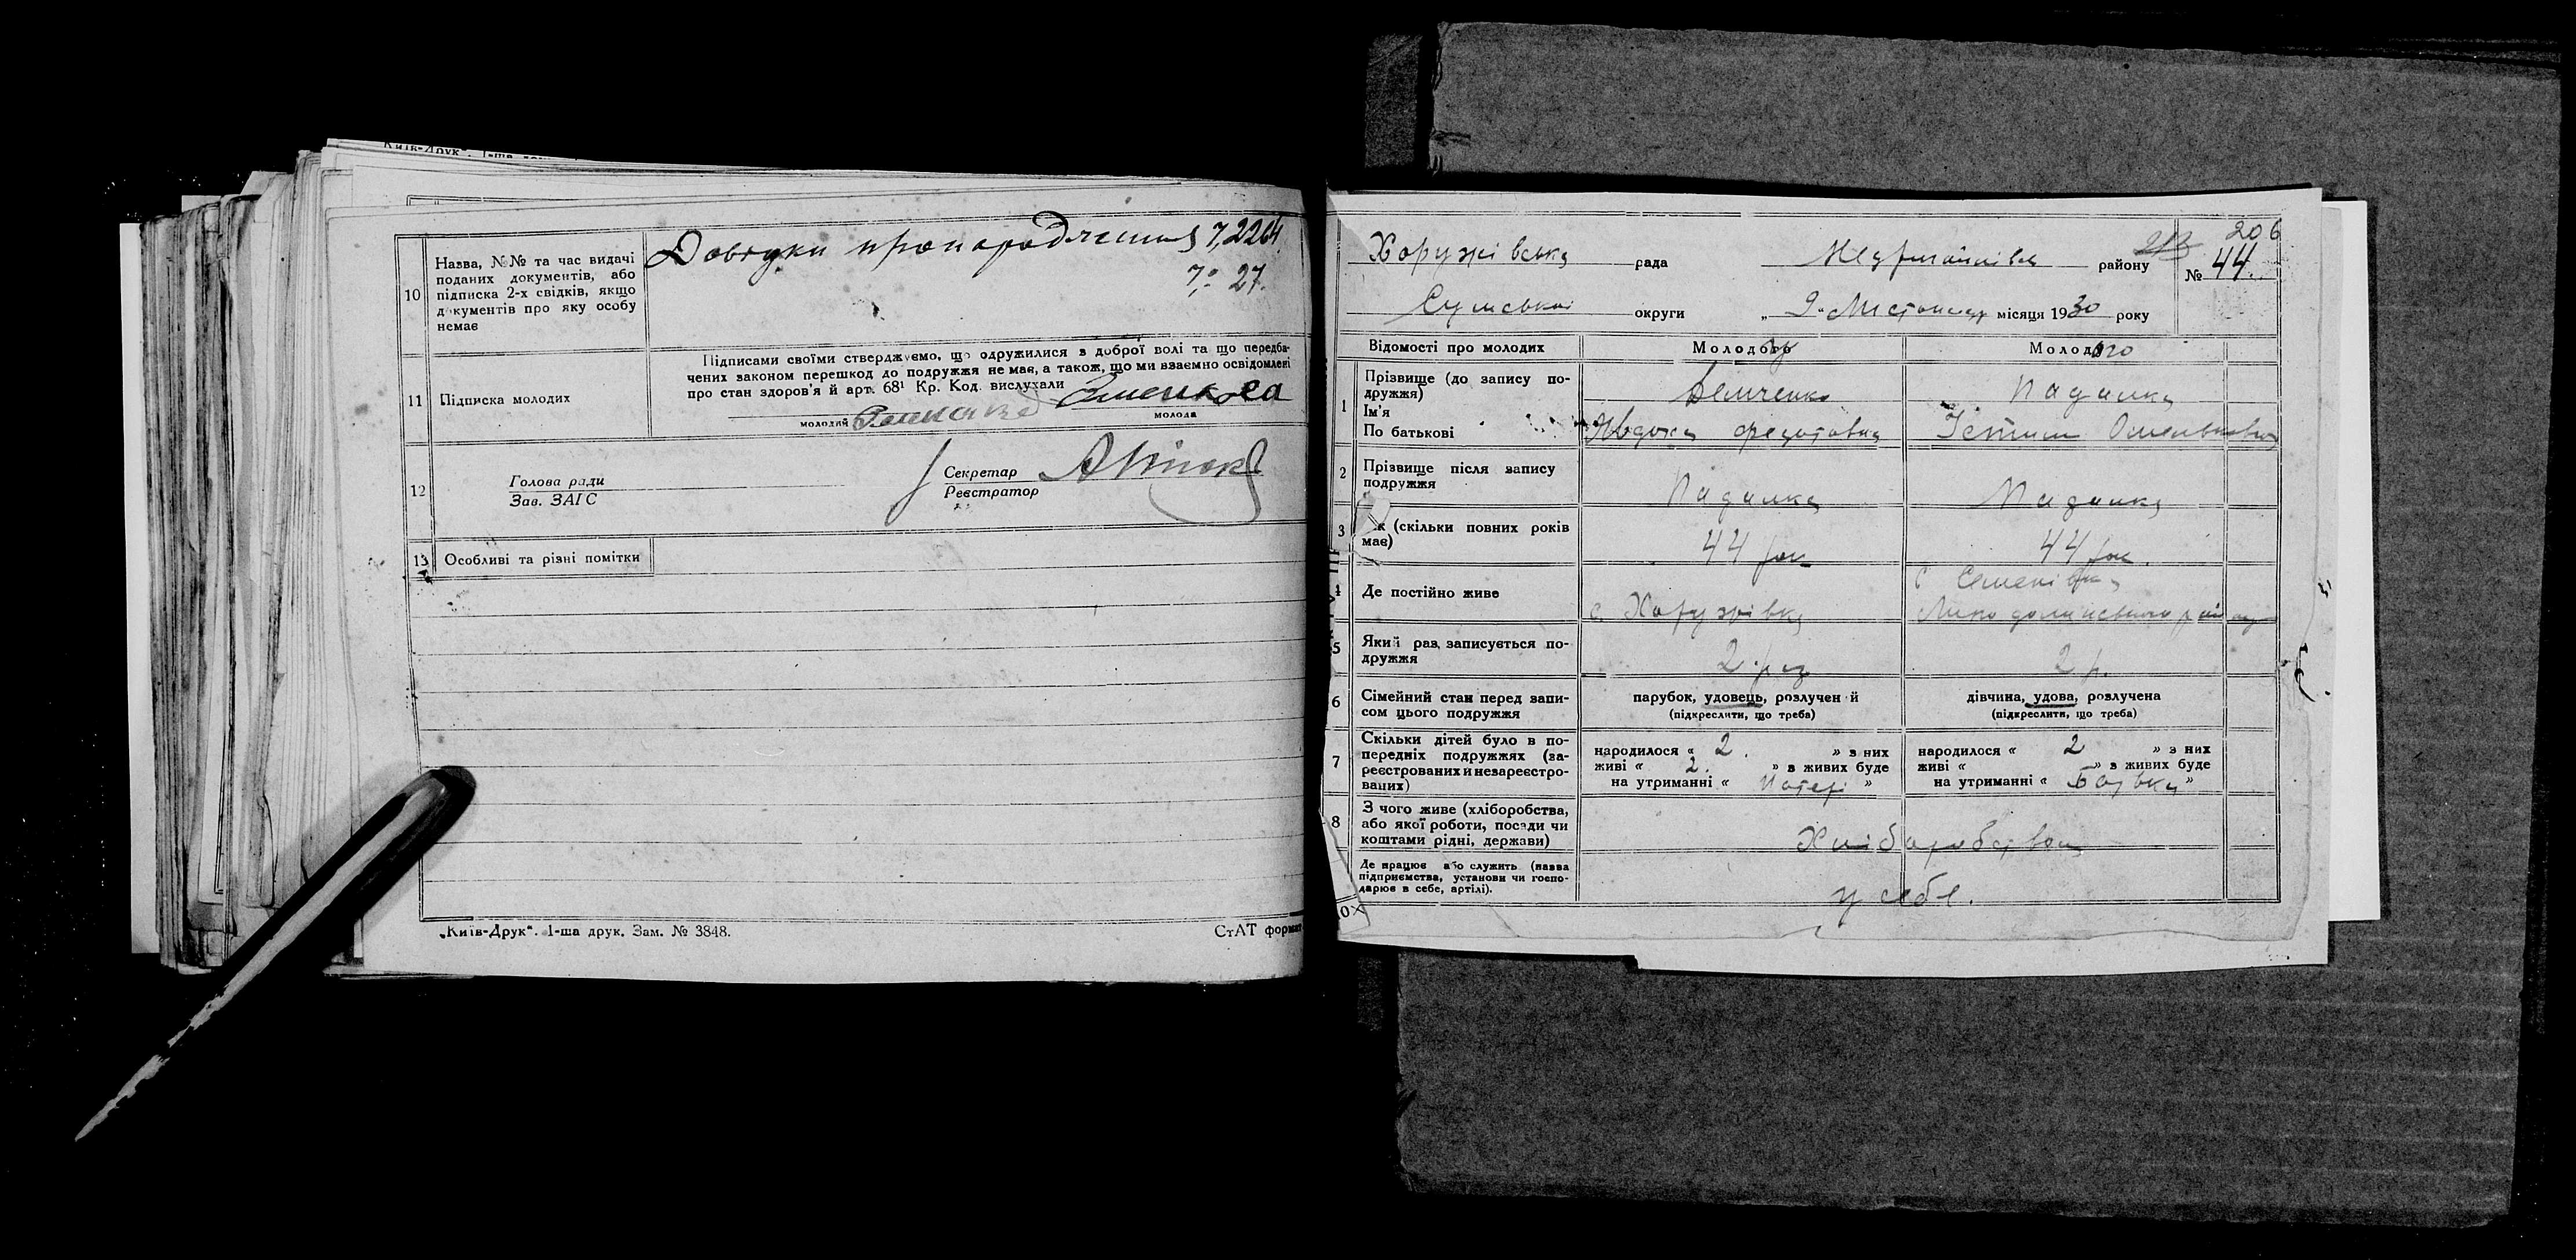 Київ-Друк". 1-ша
10 Назва, №№ та час видачі поданих документів, або підписка 2-х свідків, якщо документів про яку особу немає
Довідки про народження 7,2264
27.
11 Підписка молодих
Підписами своїми стверджуємо, що одружилися з доброї волі та що передба-
чених законом перешкод до подружжя немає, а також, що ми взаємно освідомлені
про стан здоров'я й арт. 68¹ Кр. Код. вислухали
молодий
молода
12 Голова ради
Зав. ЗАГС
Секретар
Реєстратор
13 Особливі та різні помітки
„Київ-Друк". 1-ша друк. Зам. № 3848.
СтАТ формат
206
213
Хоружівська рада Недригайлівськ району № 44.
Сумської округи „9" Листопад місяця 1930 року
Відомості про молодих
Молодого
Молодої
1 Прізвище (до запису по-
дружжя)
Ім'я
По батькові
Демченко
Падалка
Явдоха Федотовна
Устим Омелькович
2 Прізвище після запису
подружжя
Падалка
Падалка
3 Вік (скільки повних років
має)
44 рок
44 рок.
4 Де постійно живе
с. Хоружівка
с Семенівка
5 Який раз записується по-
дружжя
2 раз
2 р.
6 Сімейний стан перед запи-
сом цього подружжя
парубок, удовець, розлучений
(підкреслити, що треба)
дівчина, удова, розлучена
(підкреслити, що треба)
7 Скільки дітей було в по-
передніх подружжях (за-
реєстрованих и незареєстро-
ваних)
народилося « 2. » з них
живі « 2. » з живих буде
на утриманні « Матері »
народилося « 2 » з них
живі « » з живих буде
на утриманні « Батька »
8 З чого живе (хліборобства,
або якої роботи, посади чи
коштами рідні, держави)
Хліборобством
Де працює або служить (назва
підприємства, установи чи госпо-
дарює в себе, артілі).
у себе.